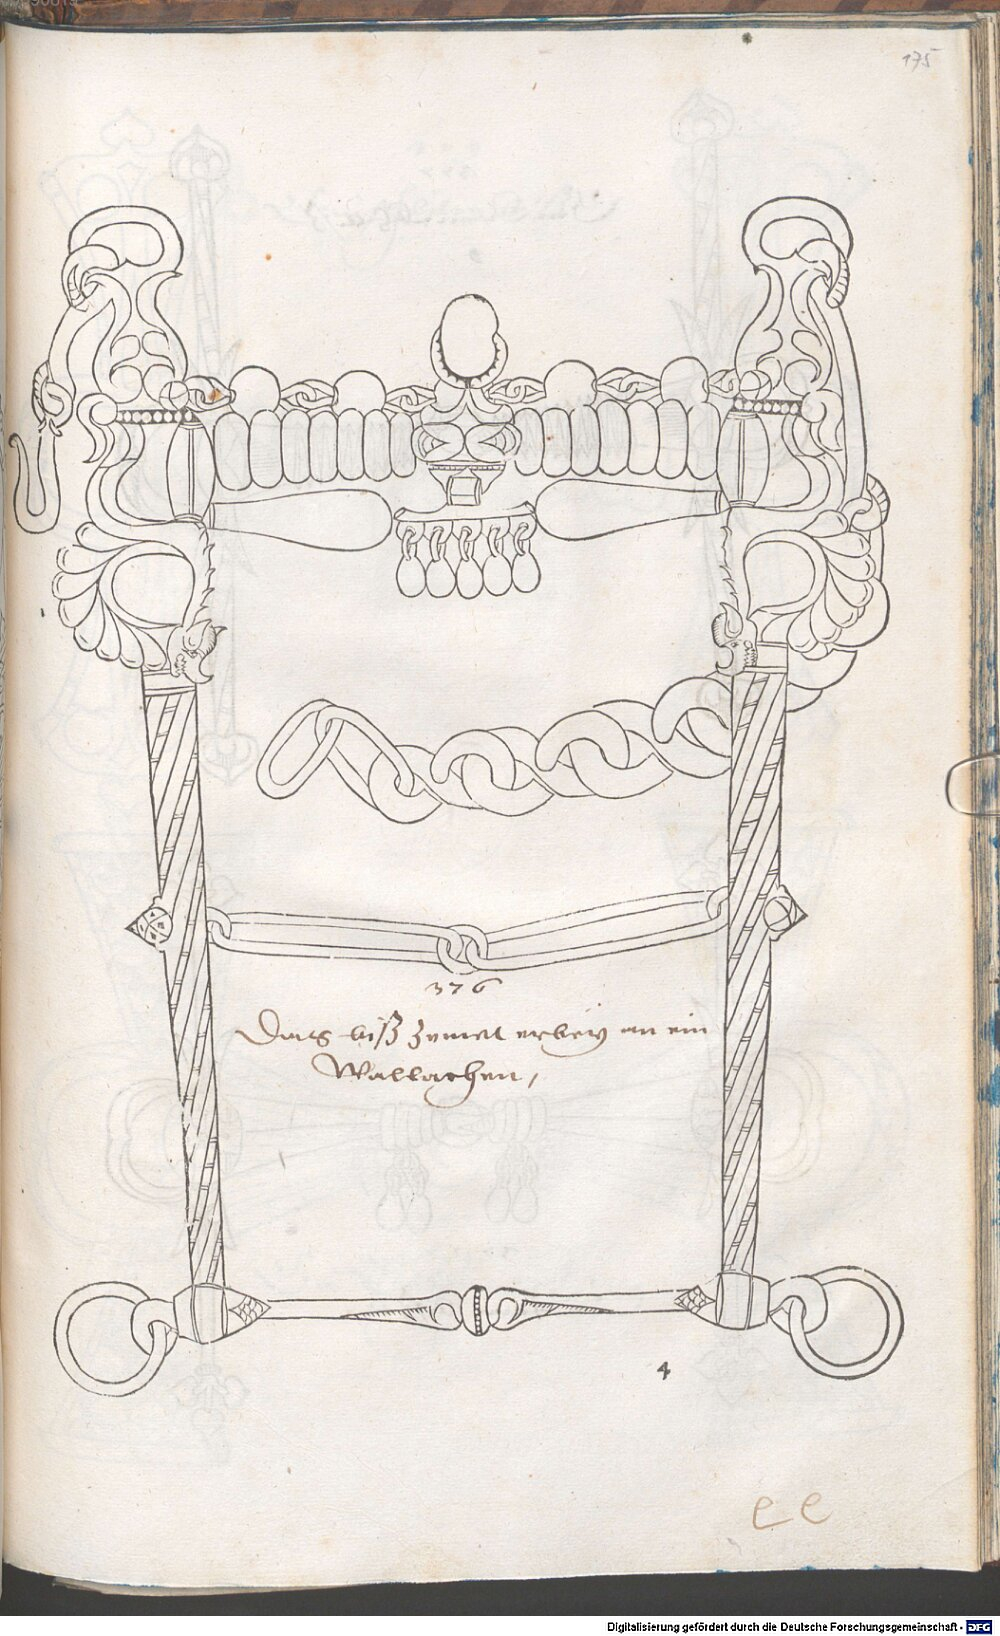 175
376
Das biß zymet erbey an ein
Wallachen,
4
e e
Digitalisierung gefördert durch die Deutsche Forschungsgemeinschaft - DFG